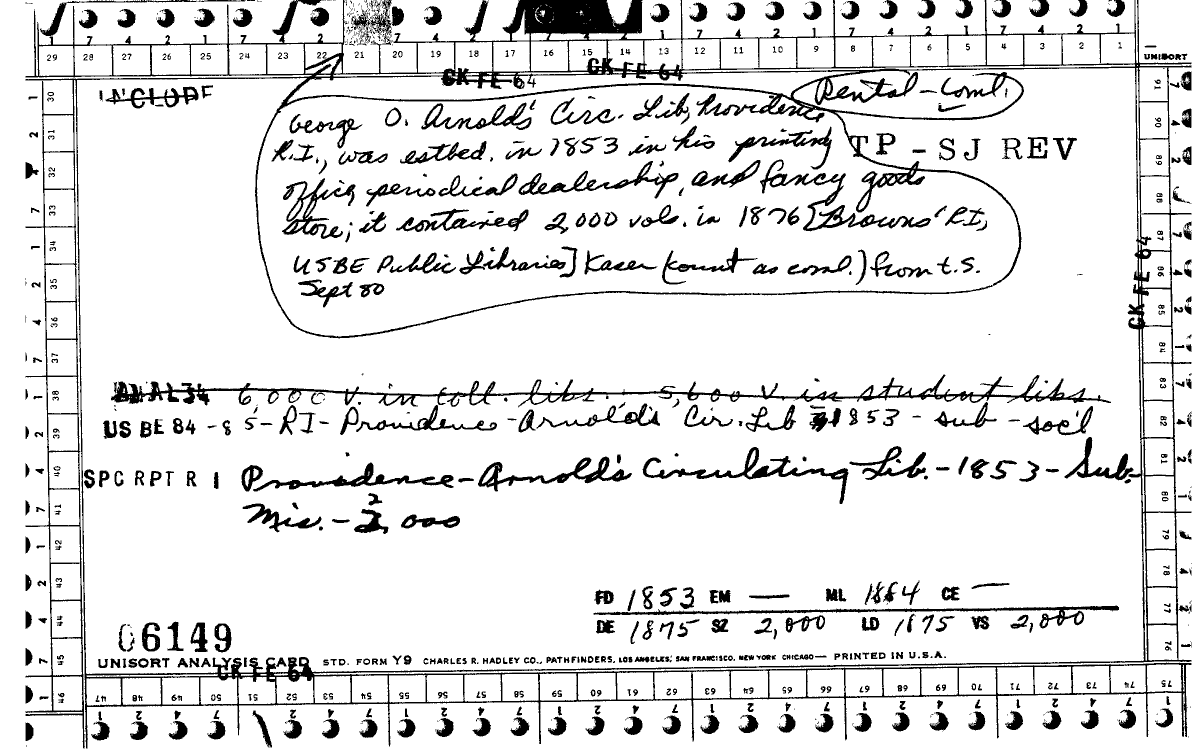 29 28 27 26 25 24 23 22 21 20 19 18 17 16 15 14 13 12 11 10 9 8 7 6 5 4 3 2 1
UNISORT
CK FE-64 CK FE-64
INCLUDE
Rental-Coml.
George O. Arnold's Circ. Lib, Providence
R.I., was estbed. in 1853 in his printing
TP - SJ REV
office, periodical dealership, and fancy goods
store; it contained 2,000 vols. in 1876 [Browns' R.I,
USBE Public Libraries] Kaser (count as coml.) from t.s.
Sept 80
CK FE 64
ANAL34 6,000 V. in coll. libs. 5,600 V. in student libs.
US BE 84-85-RI-Providence-Arnold's Cir. Lib 1853-sub-soc'l
SPC RPT R I Providence-Arnold's Circulating Lib.-1853-Sub-
Mis.-2,000
FD 1853 EM — ML 1864 CE —
DE 1875 SZ 2,000 LD 1875 VS 2,000
06149
UNISORT ANALYSIS CARD STD. FORM Y9 CHARLES R. HADLEY CO., PATHFINDERS, LOS ANGELES, SAN FRANCISCO, NEW YORK CHICAGO — PRINTED IN U.S.A.
CK FE 64
47 48 49 50 51 52 53 54 55 56 57 58 59 60 61 62 63 64 65 66 67 68 69 70 71 72 73 74 75